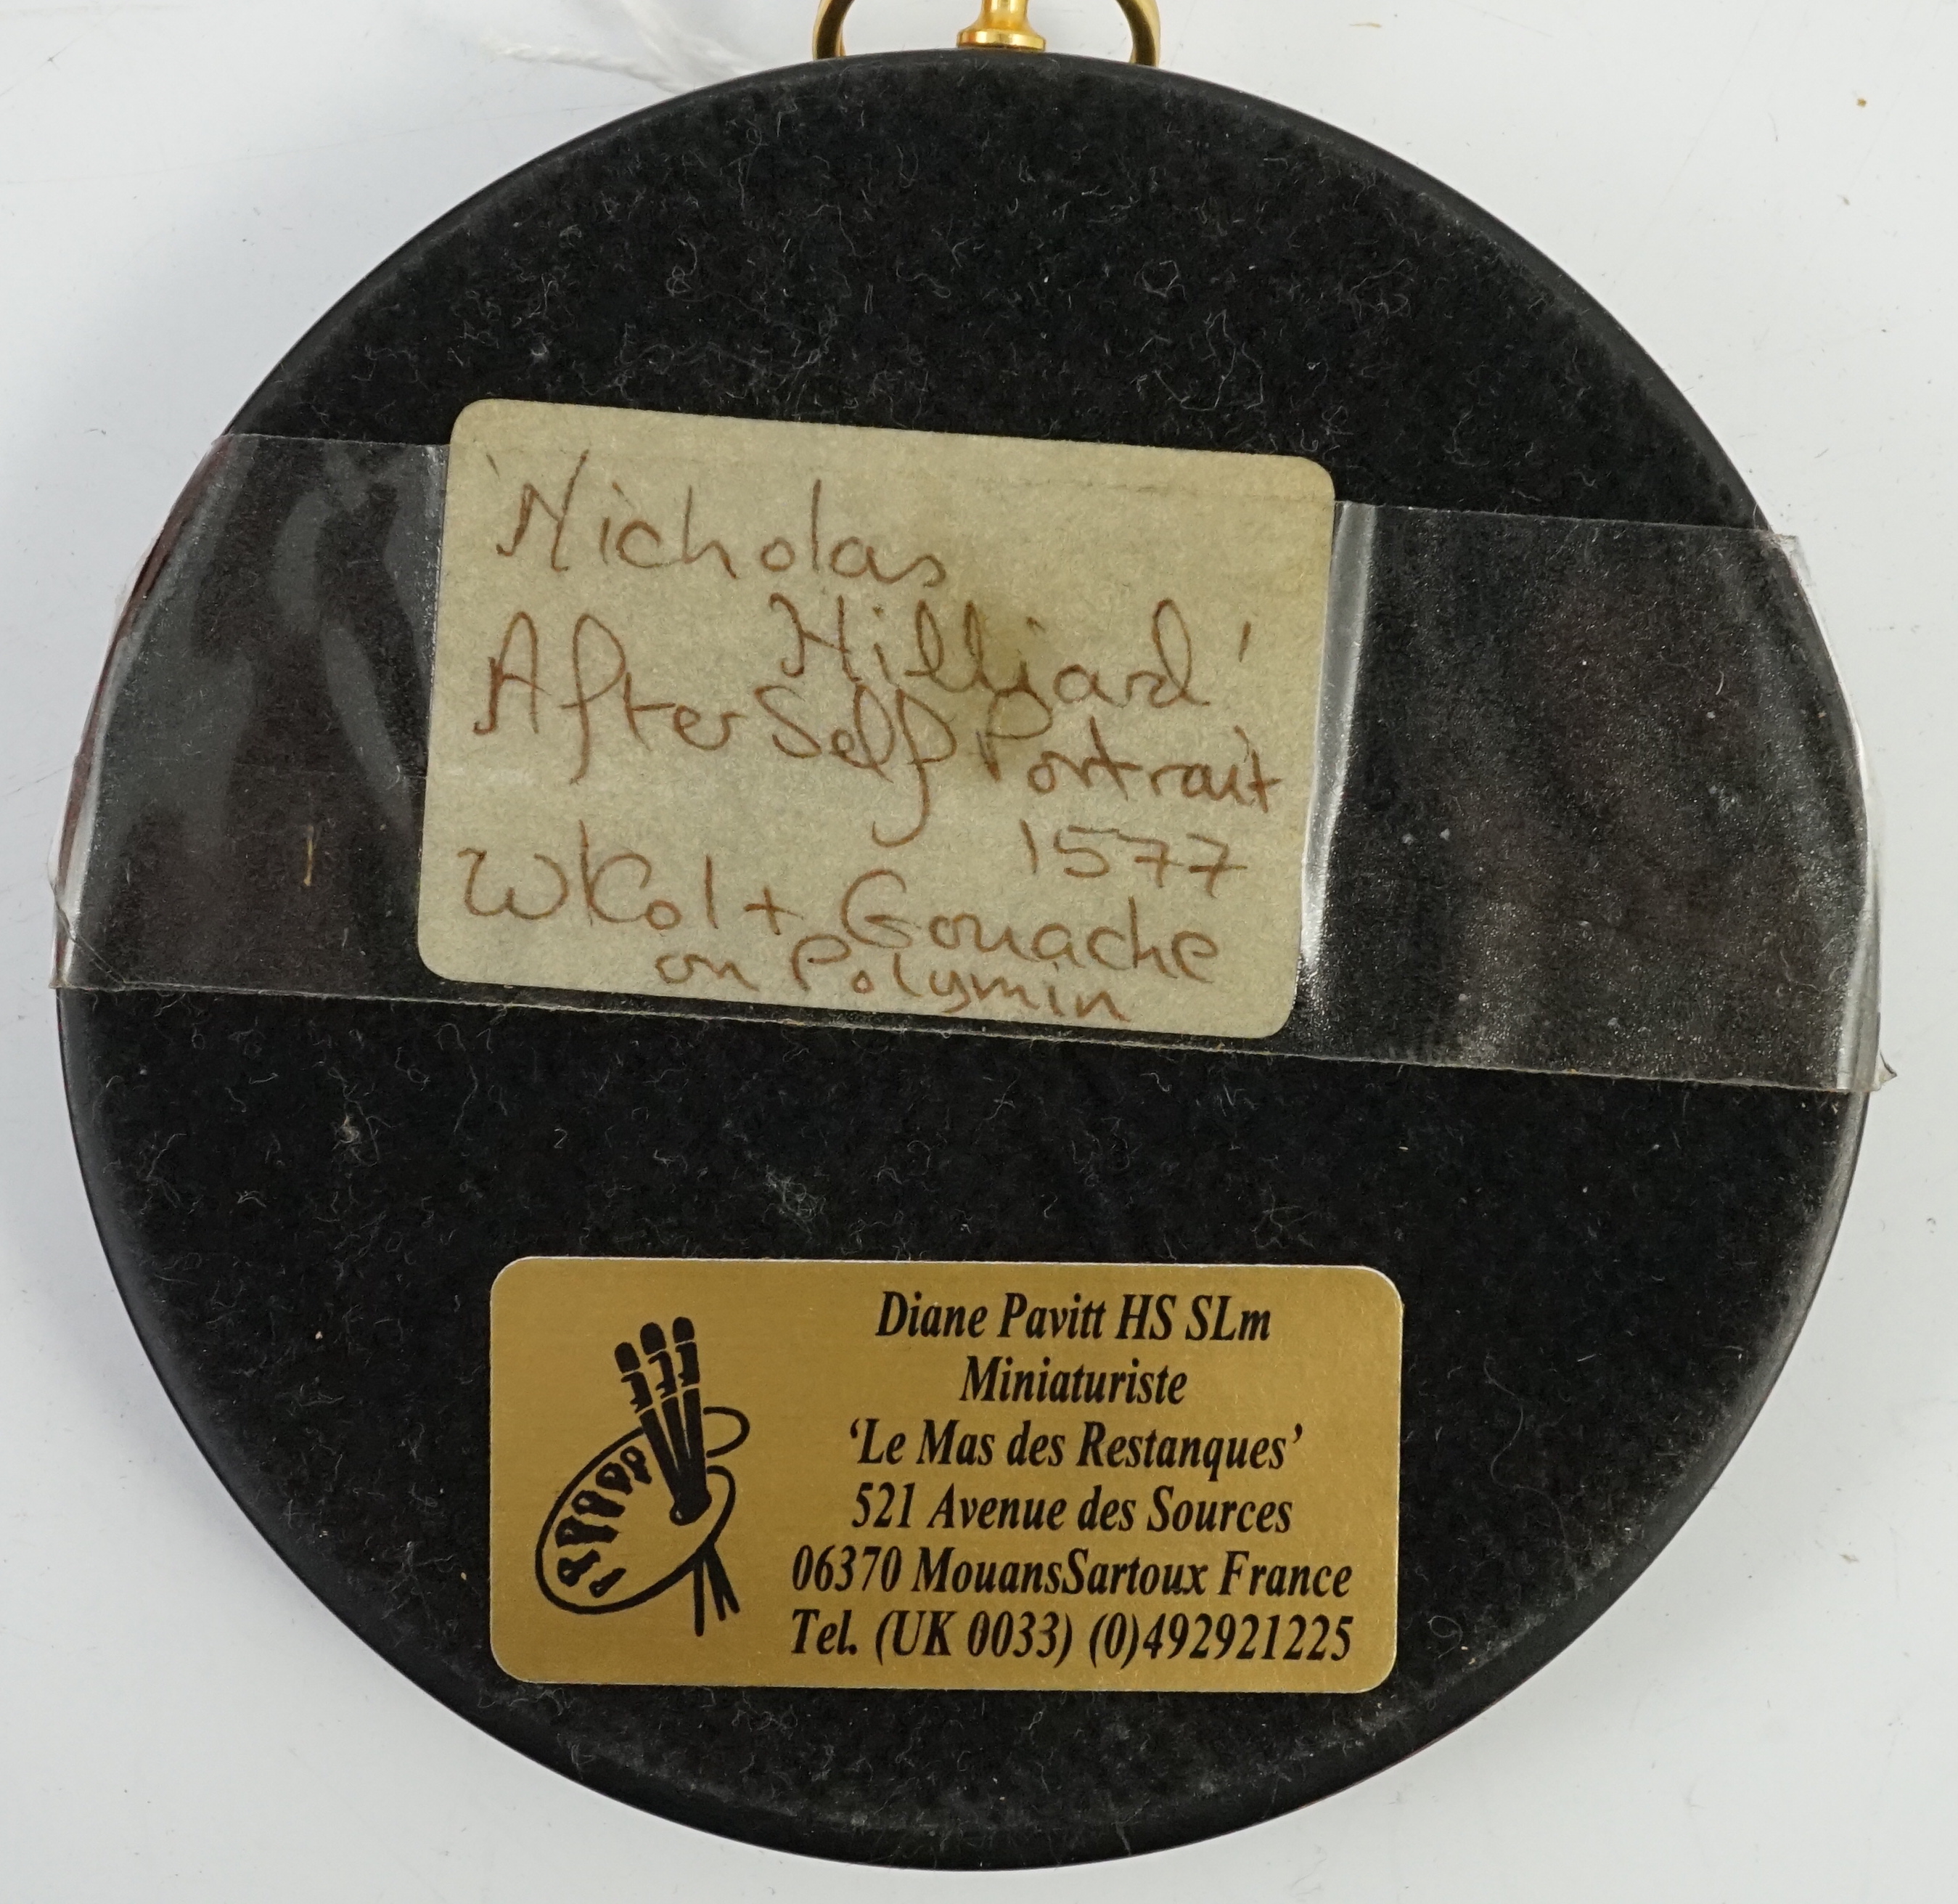 'Nicholas
Hilliard'
After Self Portrait
1577
W/Col + Gouache
on Polymin
Diane Pavitt HS SLm
Miniaturiste
‘Le Mas des Restanques’
521 Avenue des Sources
06370 MouansSartoux France
Tel. (UK 0033) (0)492921225